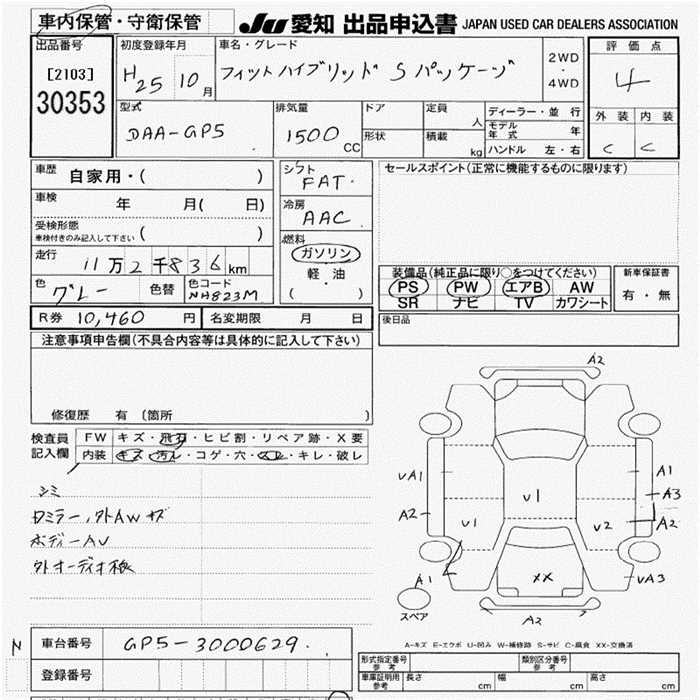 車内保管・守衛保管
JU 愛知 出品申込書 JAPAN USED CAR DEALERS ASSOCIATION
出品番号
[2103]
30353
初度登録年月
H25 10月
車名・グレード
フィットハイブリッド Sパッケージ
2WD
・
4WD
評価点
4
外装 内装
C C
型式
DAA-GP5
排気量
1500 CC
ドア
形状
定員 人
積載 kg
ディーラー・並行
モデル年式 年
ハンドル 左・右
車歴 自家用・( )
車検 年 月( 日)
受検形態
車検付きのみ記入して下さい ( )
走行 11万2千836km
色 グレー
色替
色コード
NH823M
シフト
FAT.
冷房
AAC
燃料
ガソリン
軽・油
( )
セールスポイント(正常に機能するものに限ります)
装備品(純正品に限り○をつけてください)
PS PW エアB AW
SR ナビ TV カワシート
新車保証書
有・無
後日品
R券 10,460 円
名変期限 月 日
注意事項申告欄(不具合内容等は具体的に記入して下さい)
修復歴 有 〔箇所 〕
検査員
記入欄
FW キズ・飛石・ヒビ割・リペア跡・X要
内装 キズ・汚レ・コゲ・穴・スレ・キレ・破レ
シミ
ロミラー,クトAWキズ
ボディーAU
外オーディオ
A2
UA1
A1
A3
A2
A2
U1
U1
U2
A1
XX
UA3
A2
スペア
A-キズ E-エクボ U-凹み W-補修跡 S-サビ C-腐食 XX-交換済
N
車台番号 GP5-3000629.
登録番号
形式指定番号
参考
類別区分番号
参考
車庫証明用
参考
長さ cm
幅 cm
高さ cm